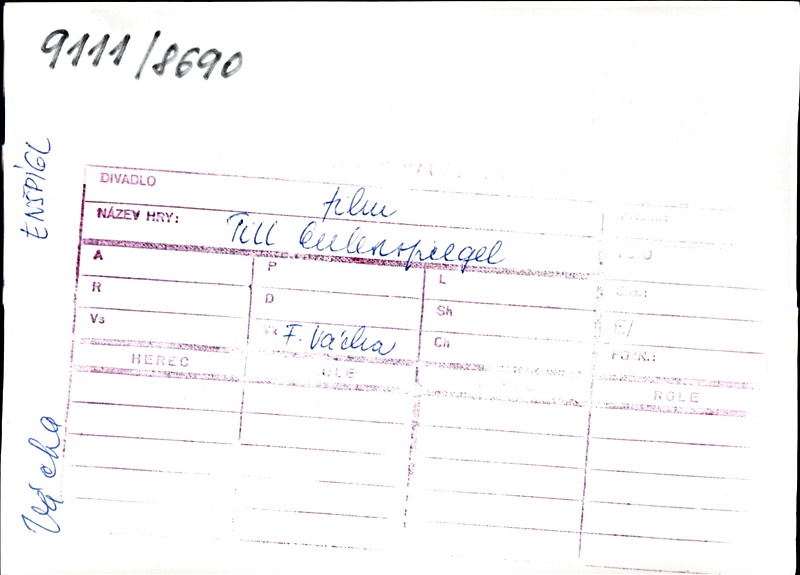 9111/8690
ENŠPÍGL
DIVADLO
film
NÁZEV HRY: Till Eulenspiegel
A P L
R D Sh
Vs F. Vácha Ch
POZN.:
HEREC ROLE
Vácha